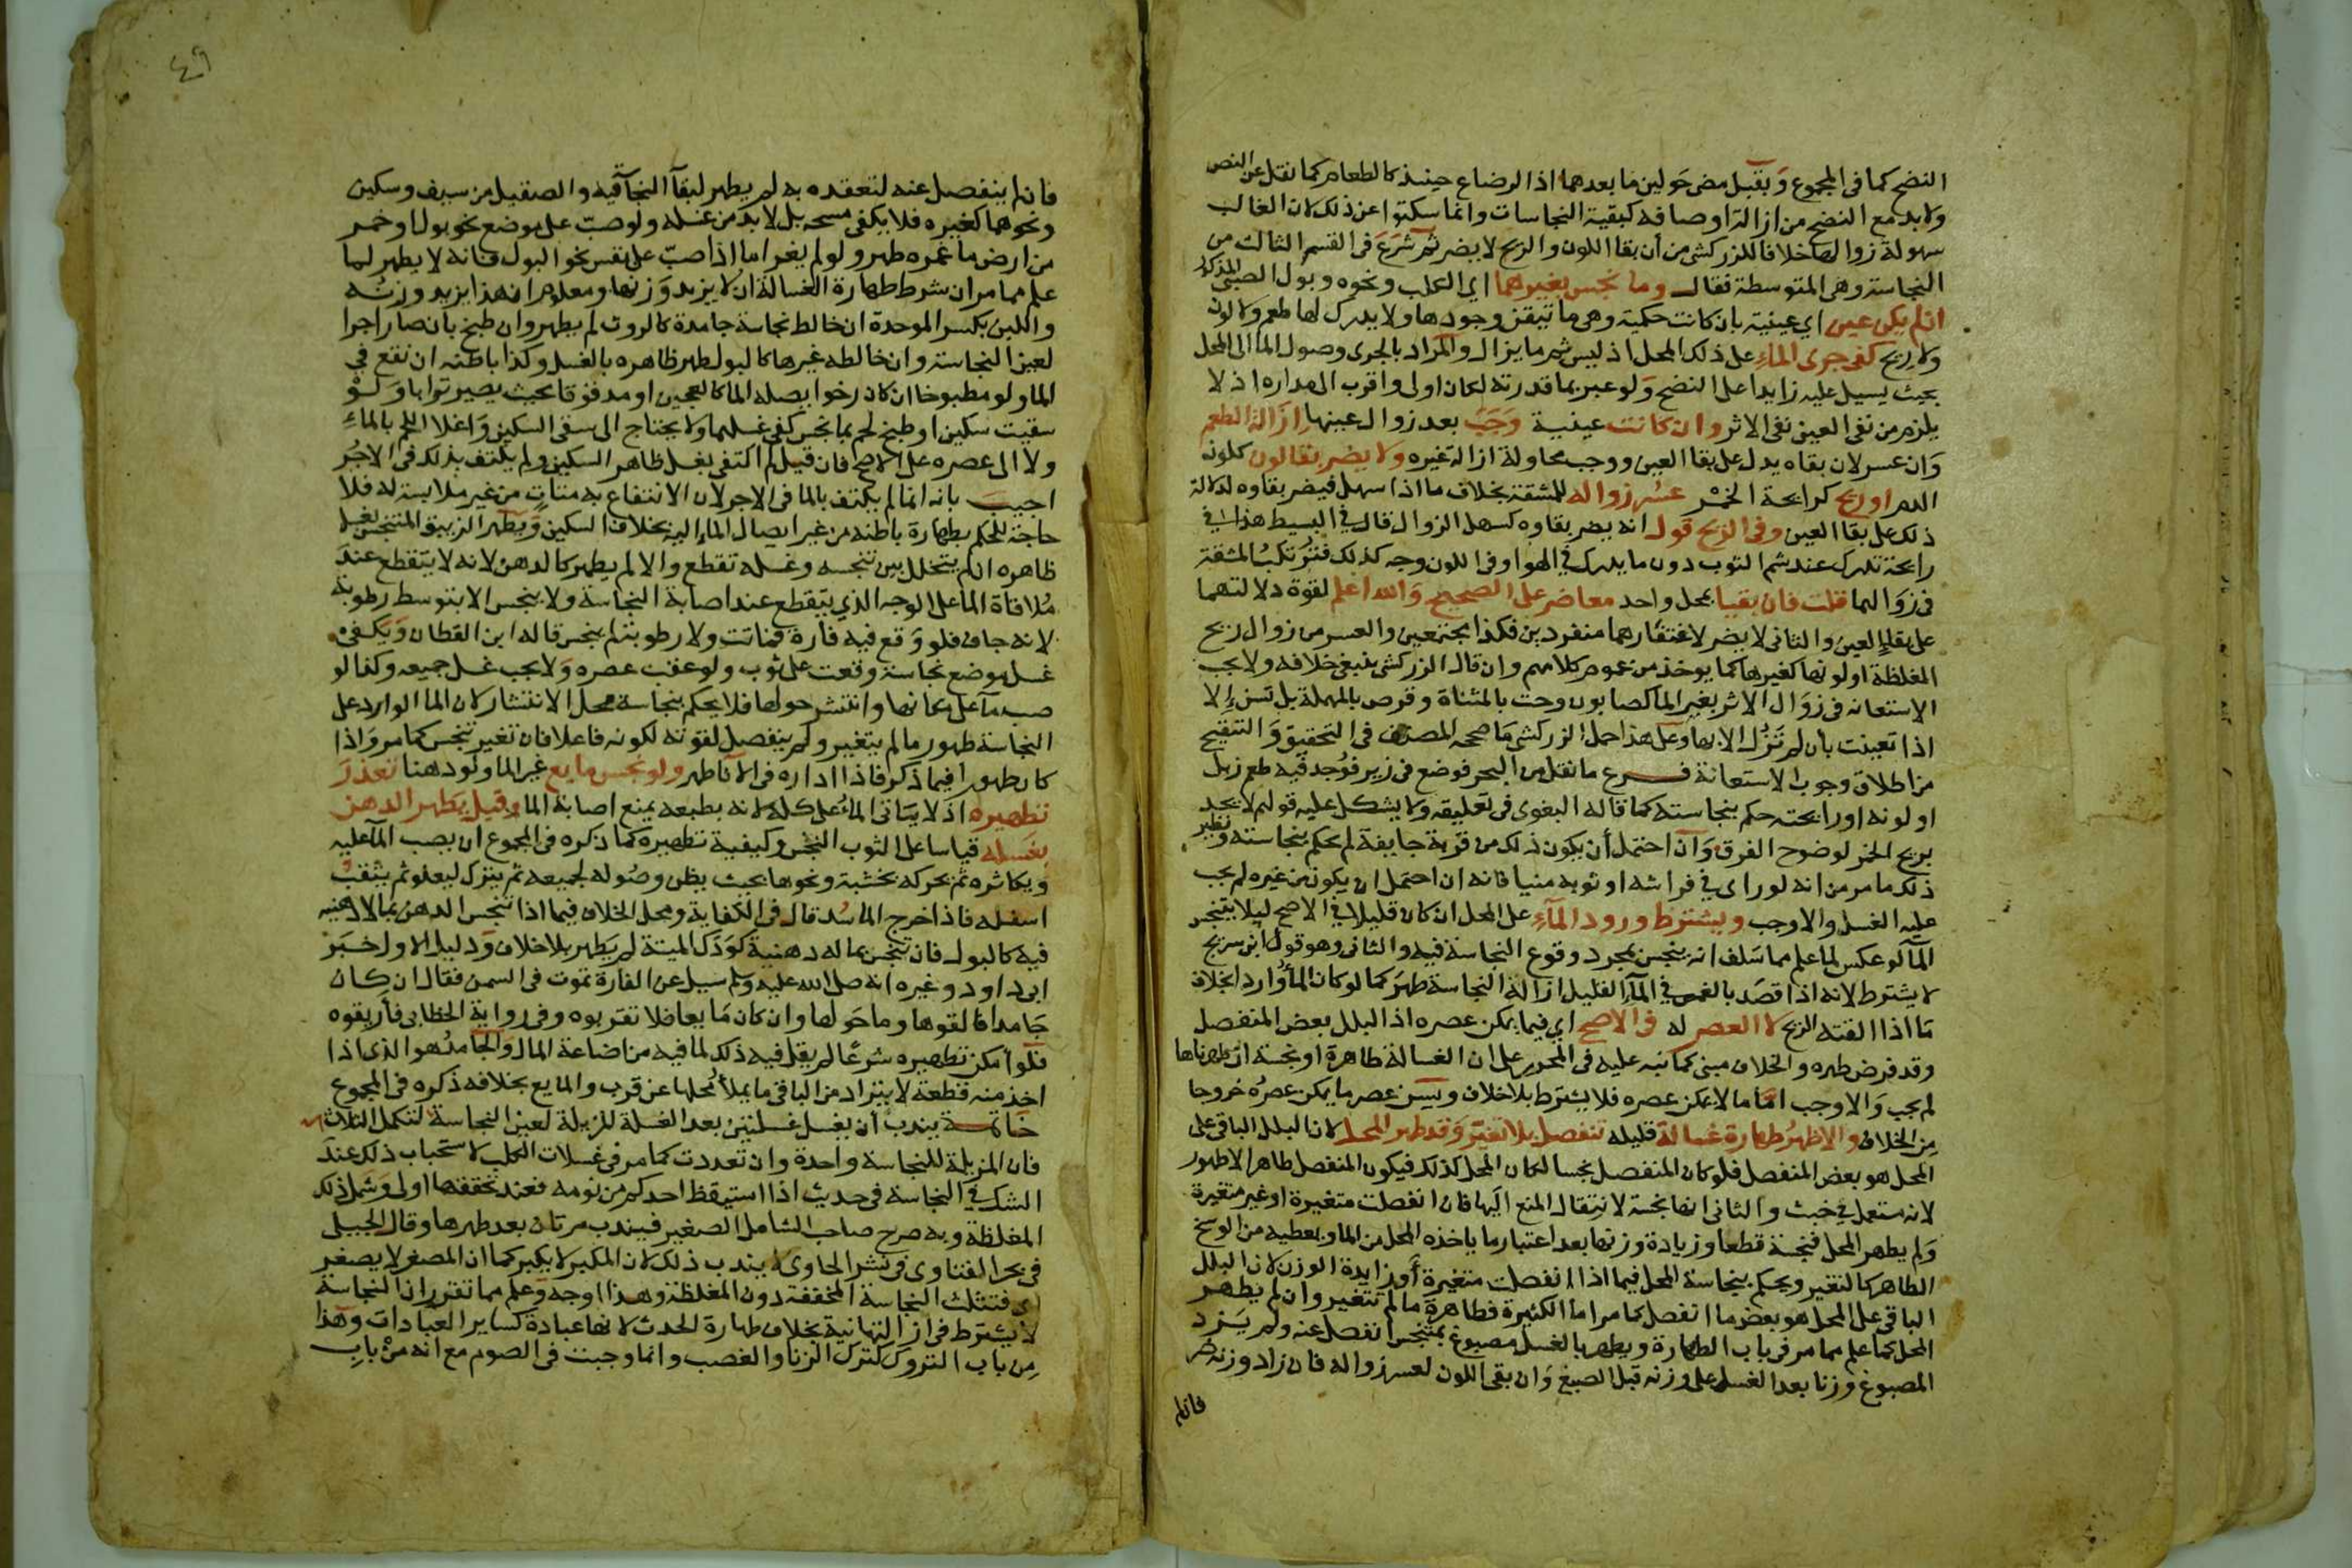 النضح كما في المجموع وبقبل مضي حولين ما بعدهما اذ الرضاع حينئذ كالطعام كما نقل عن النص
ولا بد مع النضح من ازالة اوصافه كبقية النجاسات وانما سكتوا عن ذلك لان الغالب
سهولة زوالها خلافا للزركشي من أن بقا اللون والريح لا يضر ثم شرع في القسم الثالث من
النجاسة وهي المتوسطة فقال وما نجس بغيرهما اي الكلب ونحوه وبول الصبي المذكور
ان لم يكن عين اي عينية بان كانت حكمية وهي ما تيقن وجودها ولا يدرك لها طعم ولا لون
ولا ريح كفي جري الماء على ذلك المحل اذ ليس ثم ما يزال والمراد بالجري وصول الما الى المحل
بحيث يسيل عليه زايدا على النضح ولو عبر بما قدرته لكان اولى واقرب الى مداره اذ لا
يلزم من نفي العين نفي الاثر وان كانت عينية وجب بعد زوال عينها ازالة الطعم
وان عسر لان بقاه يدل على بقا العين ووجب محاولة ازالة غيره ولا يضر بقا لون كلون
الدم او ريح كرايحة الخمر عسر زواله للمشقة بخلاف ما اذا سهل فيضر بقاوه لدلالة
ذلك على بقا العين وفي الريح قول انه يضر بقاوه كسهل الزوال قال في البسيط هذا في
رايحة تدرك عند شم الثوب دون ما يدرك في الهوا وفي اللون وجه كذلك فترتكب المشقة
في زوالهما قلت فان بقيا بمحل واحد معا ضر على الصحيح والله اعلم لقوة دلالتهما
على بقاء العين والثاني لا يضر لاغتفارهما منفردين فكذا مجتمعين والعسر من زوال ريح
المغلظة او لونها كغيرها كما يوخذ من عموم كلامهم وان قال الزركشي ينبغي خلافه ولا يجب
الاستعانة في زوال الاثر بغير الما كصابون وحت بالمثناة وقرص بالمهملة بل تسن الا
اذا تعينت بأن لم تزل الا بها وعلى هذا حمل الزركشي ما صححه المصنف في التحقيق والتنقيح
من اطلاق وجوب الاستعانة فرع ما نقل من البحر فوضع في زير فوجد فيه طعم زبل
او لونه او رايحته حكم بنجاسته كما قاله البغوي في تعليقه ولا يشكل عليه قولهم لا يحد
بريح الخمر لوضوح الفرق وان احتمل أن يكون ذلك من قربة جايفة لم يحكم بنجاسته ونظير
ذلك ما مر من انه لو راى في فراشه او ثوبه منيا فانه ان احتمل ان يكون من غيره لم يجب
عليه الغسل والا وجب ويشترط ورود الماء على المحل ان كان قليلا في الاصح ليلا يتنجس
الماء لو عكس لما علم مما سلف انه ينجس بمجرد وقوع النجاسة فيه والثاني وهو قول ابن سريج
لا يشترط لانه اذا قصد بالغمس في الماء القليل ازالة النجاسة طهر كما لو كان الماء واردا بخلاف
ما اذا القته الريح لا العصر له في الاصح اي فيما يمكن عصره اذ البلل بعض المنفصل
وقد فرض طهره والخلاف مبني كما نبه عليه في المحرر على ان الغسالة طاهرة او نجسة ان طهرناها
لم يجب والا وجب اما ما لا يمكن عصره فلا يشترط بلا خلاف ويسن عصر ما يمكن عصره خروجا
من الخلاف والاظهر طهارة غسالة قليلة تنفصل بلا تغير وقد طهر المحل لان البلل الباقي على
المحل هو بعض المنفصل فلو كان المنفصل نجسا لكان المحل كذلك فيكون المنفصل طاهرا لا طهور
لانه مستعمل في خبث والثاني انها نجسة لانتقال المنع اليها فان انفصلت متغيرة او غير متغيرة
ولم يطهر المحل فنجسة قطعا وزيادة وزنها بعد اعتبار ما ياخذه المحل من الما ويعطيه من الوسخ
الطاهر كالتغير ويحكم بنجاسة المحل فيما اذا انفصلت متغيرة أو زايدة الوزن لان البلل
الباقي على المحل هو بعض ما انفصل كما مر اما الكثيرة فطاهرة ما لم تتغير وان لم يطهر
المحل كما علم مما مر في باب الطهارة ويطهر بالغسل مصبوغ بمتنجس انفصل عنه ولم يزد
المصبوغ وزنا بعد الغسل على وزنه قبل الصبغ وان بقي اللون لعسر زواله فان زاد وزنه ضر
فان لم
٤٩
فان لم ينفصل عنه لتعقده به لم يطهر لبقاء النجاسة فيه والصقيل من سيف وسكين
ونحوهما كغيره فلا يكفي مسحه بل لا بد من غسله ولو صب على موضع نحو بول او خمر
من ارض ما غمره طهر ولو لم يغر اما اذا صب على نفس نحو البول فانه لا يطهر لما
علم مما مر ان شرط طهارة الغسالة ان لا يزيد وزنها ومعلوم ان هذا يزيد وزنه
واللبن بكسر الموحدة ان خالط نجاسة جامدة كالروث لم يطهر وان طبخ بأن صار اجرا
لعين النجاسة وان خالطه غيرها كالبول طهر ظاهره بالغسل وكذا باطنه ان نقع في
الما ولو مطبوخا ان كان رخوا يصله الما كالعجين او مدقوقا بحيث يصير ترابا ولو
سقيت سكين او طبخ لحم بما نجس كفى غسلهما ولا يحتاج الى سقي السكين واغلا اللحم بالماء
ولا الى عصره على الاصح فان قيل لم اكتفي بغسل ظاهر السكين ولم يكتف بذلك في الاجر
اجيب بانه انما لم يكتف بالما في الاجر لان الانتفاع به متات من غير ملابسته له فلا
حاجة للحكم بطهارة باطنه من غير ايصال الماء اليه بخلاف السكين ويطهر الزيبق المتنجس بغسل
ظاهره ان لم يتخلل بين تنجسه وغسله تقطع والا لم يطهر كالدهن لانه لا يتقطع عند
ملاقاة الما على الوجه الذي يتقطع عند اصابة النجاسة ولا ينجس الا بتوسط رطوبة
لانه جاف فلو وقع فيه فارة فماتت ولا رطوبة لم ينجس قاله ابن القطان ويكفي
غسل موضع نجاسة وقعت على ثوب ولو عقب عصره ولا يجب غسل جميعه وكذا لو
صب ماء على مكانها وانتشر حولها فلا يحكم بنجاسة محل الانتشار لان الما الوارد على
النجاسة طهور ما لم يتغير ولم ينفصل لقوته لكونه فاعلا فان تغير تنجس كما مر واذا
كان طهورا فيما ذكر فاذا اداره في الانا طهر ولو نجس مايع غير الما ولو دهنا تعذر
تطهيره اذ لا يتاتى الماء على كله لانه بطبعه يمنع اصابة الما وقيل يطهر الدهن
بغسله قياسا على الثوب النجس وكيفية تطهيره كما ذكره في المجموع ان يصب الماء عليه
ويكاثره ثم يحركه بخشبة ونحوها بحيث يظن وصوله لجميعه ثم يترك ليعلو ثم يثقب
اسفله فاذا خرج الما سد قال في الكفاية ومحل الخلاف فيما اذا تنجس الدهن بما لا دهنية
فيه كالبول فان تنجس بما له دهنية كودك الميتة لم يطهر بلا خلاف ودليل الاول خبر
ابي داود وغيره انه صلى الله عليه وسلم سيل عن الفارة تموت في السمن فقال ان كان
جامدا فالقوها وما حولها وان كان مايعا فلا تقربوه وفي رواية الخطابي فأريقوه
فلو أمكن تطهيره شرعا لم يقل فيه ذلك لما فيه من اضاعة المال والجامد هو الذي اذا
اخذ منه قطعة لا يتراد من الباقي ما يملأ محلها عن قرب والمايع بخلافه ذكره في المجموع
خاتمة يندب أن يغسل غسلتين بعد الغسلة المزيلة لعين النجاسة لتكمل الثلاث
فان المزيلة للنجاسة واحدة وان تعددت كما مر في غسلات الكلب لاستحباب ذلك عند
الشك في النجاسة في حديث اذا استيقظ احدكم من نومه فعند تحققها اولى وشمل ذلك
المغلظة وبه صرح صاحب الشامل الصغير فيندب مرتان بعد طهرها وقال الجيلي
في بحر الفتاوى في نشر الحاوى لا يندب ذلك لان المكبر لا يكبر كما ان المصغر لا يصغر
اي فتثلث النجاسة المخففة دون المغلظة وهذا اوجه وعلم مما تقرر ان النجاسة
لا يشترط في ازالتها نية بخلاف طهارة الحدث لانها عبادة كساير العبادات وهذا
من باب التروك كترك الزنا والغصب وانما وجبت في الصوم مع انه من باب